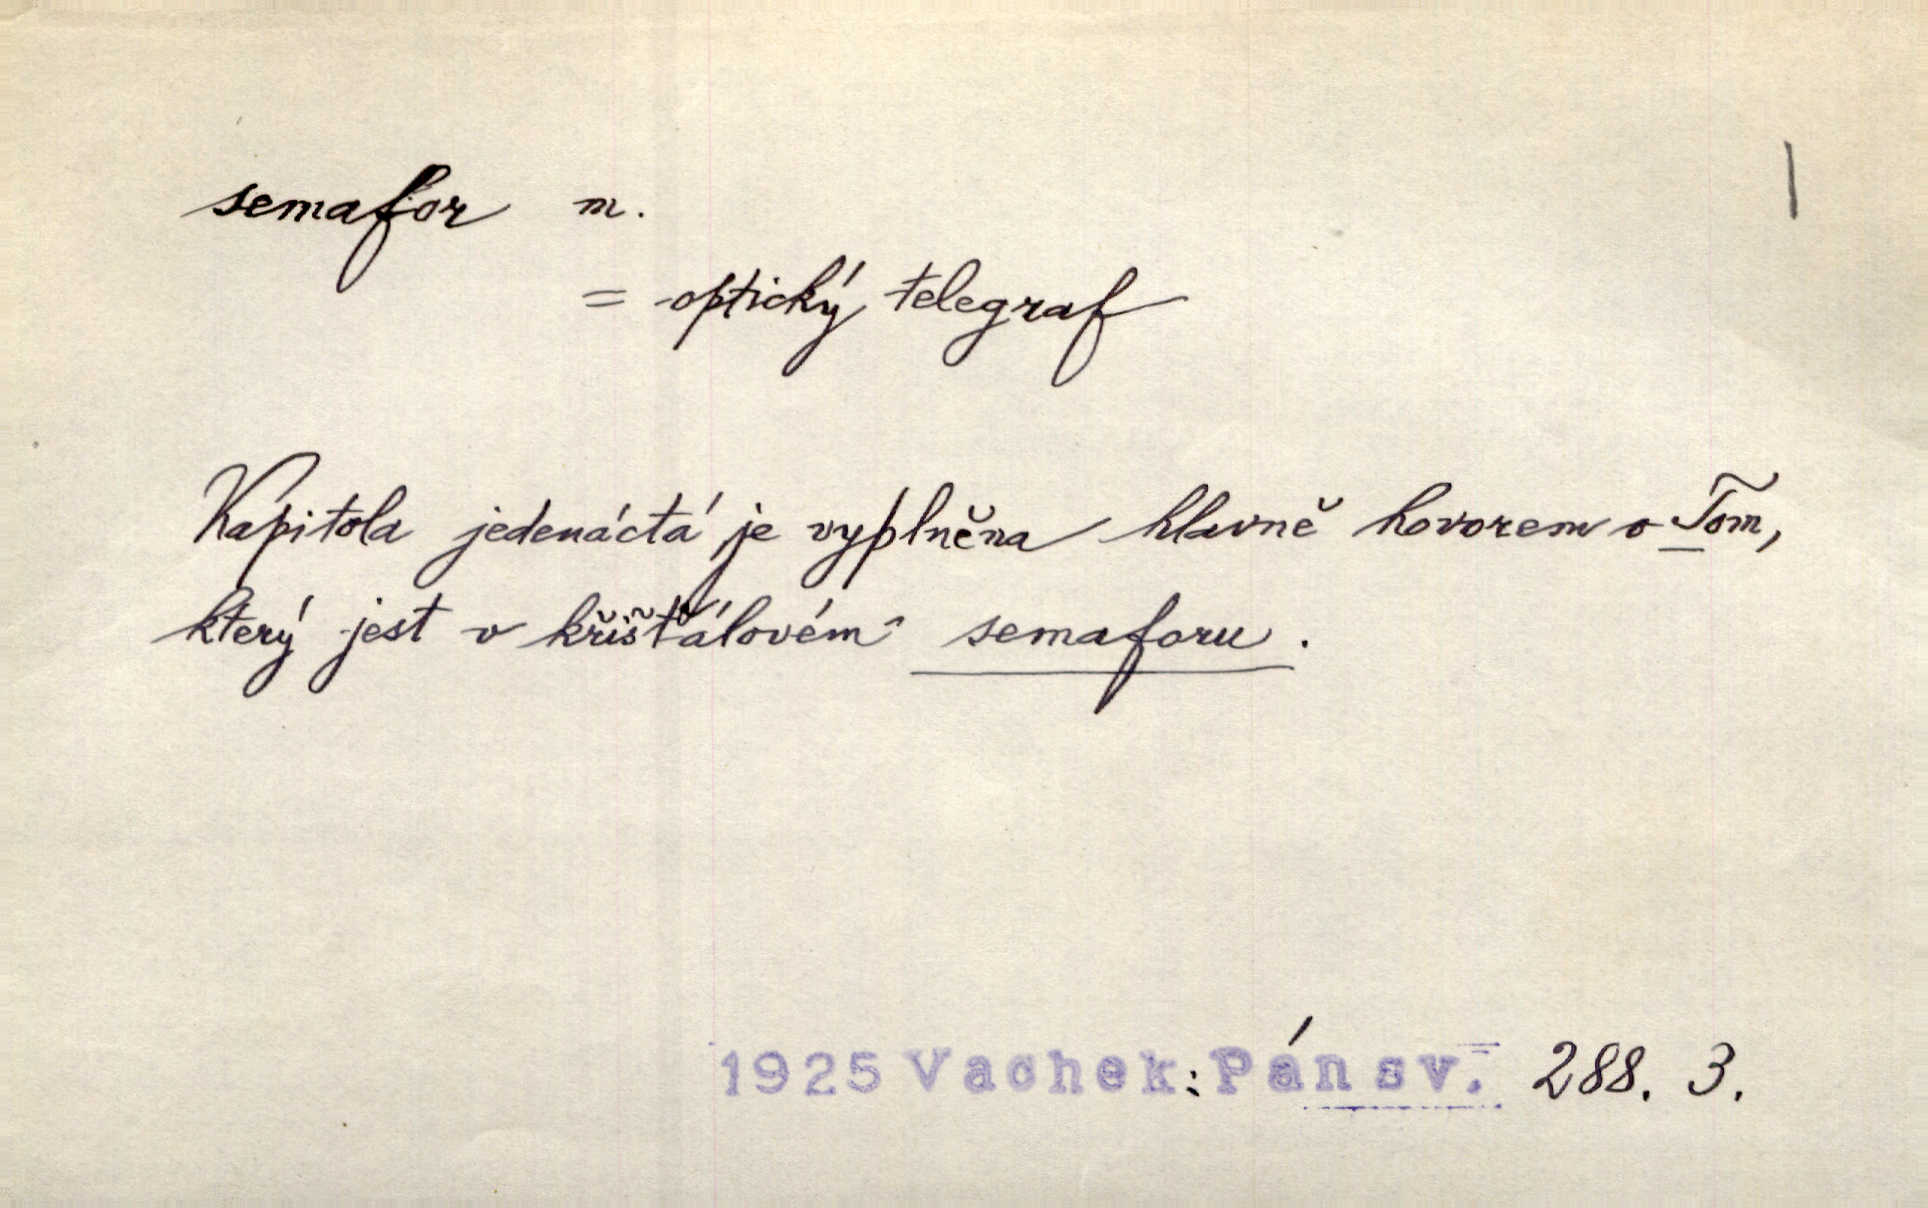 semafor m.
= optický telegraf
Kapitola jedenáctá je vyplněna hlavně hovorem o Tom,
který jest v křišťálovém semaforu.
1925 Vachek: Pán sv. 288. 3.